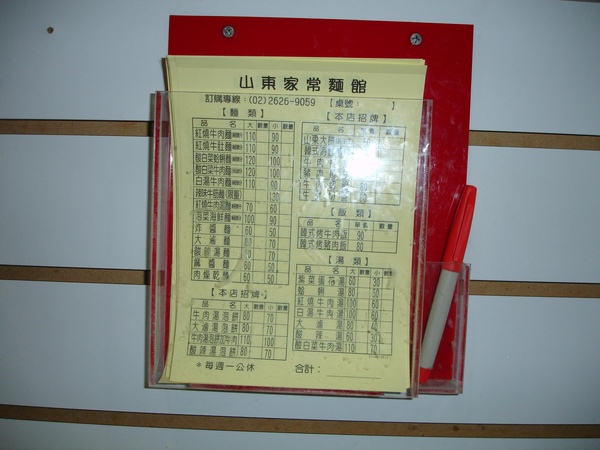 山東家常麵館
訂購專線：(02)2626-9059 【桌號： 】
【麵 類】
品 名 大 數量 小 數量
紅燒牛肉麵 110 90
紅燒牛肚麵 110 90
酸白菜 120 100
酸白菜牛肉麵 120 100
白湯牛肉麵 110 90
130
紅燒牛肉湯麵 70 60
泡菜海鮮麵 100 90
炸醬麵 60 50
大滷麵 80 70
酸辣湯麵 80 70
麻醬麵 60 50
肉燥乾麵 60 50
【本店招牌】
品 名 大 數量 小 數量
牛肉湯泡餅 80 70
大滷湯泡餅 80 70
牛肉湯泡餅加牛肉 110 100
酸辣湯泡餅 80 70
＊每週一公休
【本店招牌】
品 名
山東大餅
牛肉
【飯 類】
品 名 單價 數量
韓式烤牛肉飯 90
韓式烤豬肉飯 80
【湯 類】
品 名 大 數量 小 數量
紫菜蛋花湯 60 30
湯 80 50
紅燒牛肉湯 100 60
白湯牛肉湯 100 60
大滷湯 80 40
酸辣湯 80 40
酸白菜牛肉湯 110 70
合計：